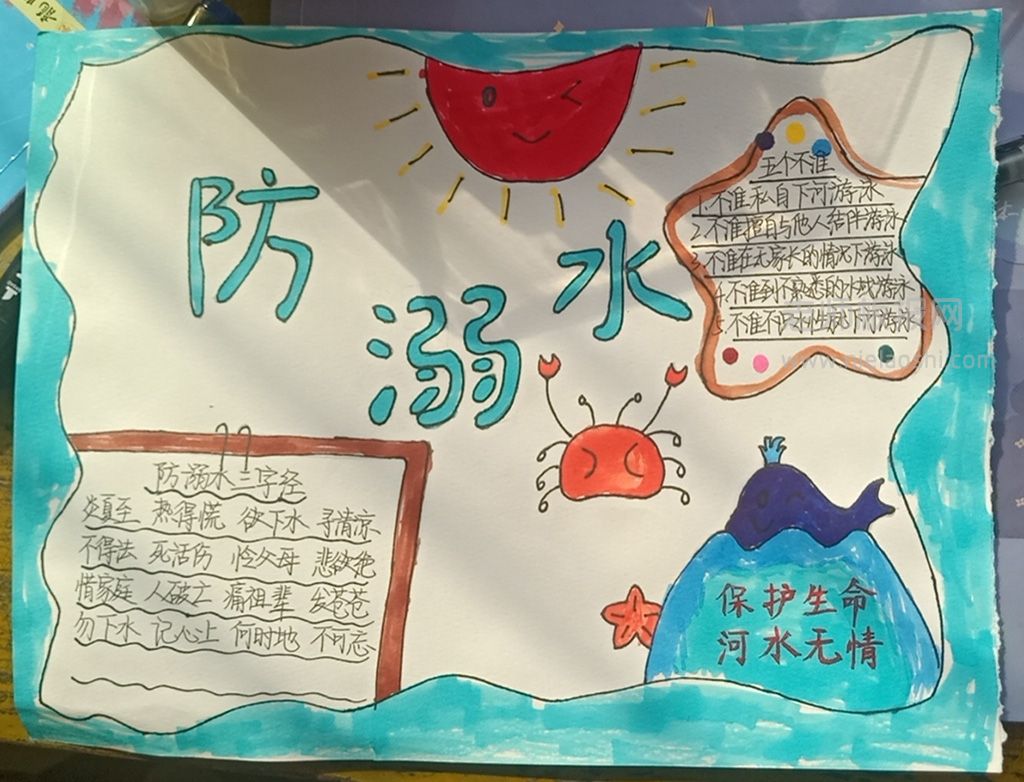 防溺水
五个不准
1.不准私自下河游泳
2.不准擅自与他人结伴游泳
3.不准在无家长的情况下游泳
4.不准到不熟悉的水域游泳
5.不准不识水性 下河游泳
防溺水三字经
炎夏至 热得慌 欲下水 寻清凉
不得法 死活伤 怜父母 悲欲绝
惜家庭 人破亡 痛祖辈 发苍苍
勿下水 记心上 何时地 不可忘
保护生命
河水无情
www.xielaoshi.com